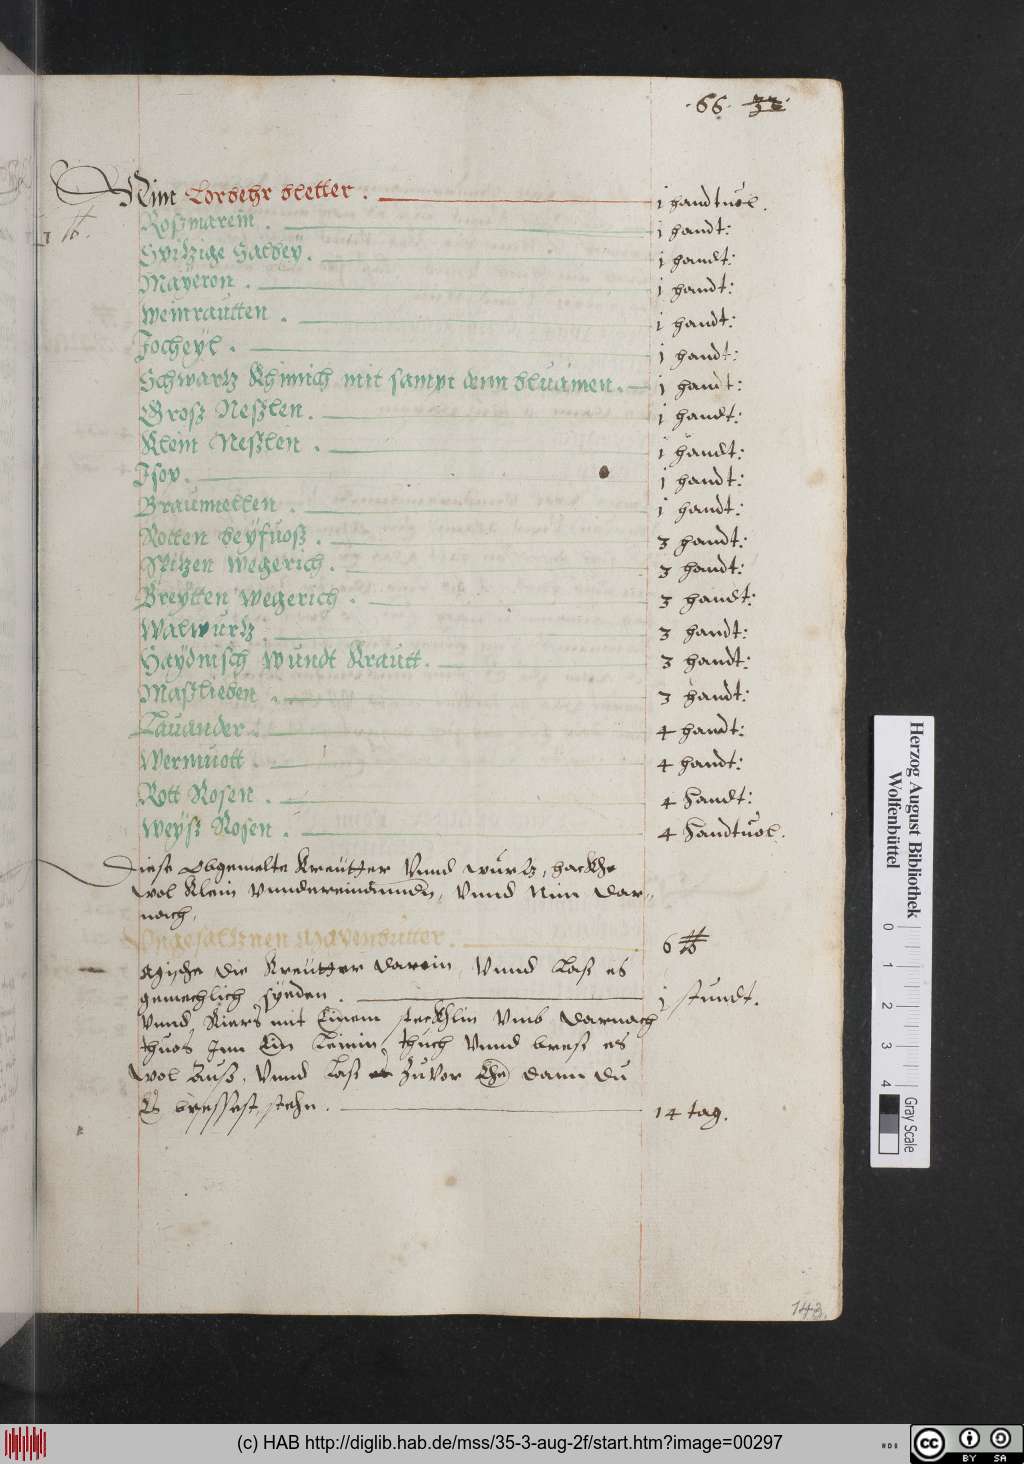 .66. 33.
Nim Lorbehr bletter. i handtuol.
Roßmarein. i handt:
Spitzige Salbey. i handt:
Mayeron. i handt:
Weinrautten. i handt:
Jocheyl. i handt:
Schwartz Khimich mit sampt denn bluamen. i handt:
Groß Neßlen. i handt:
Klein Neßlen. i handt:
Isop. i handt:
Braunnellen. i handt:
Rotten beyfuoß. 3 handt:
Spitzen Wegerich. 3 handt:
Breytten Wegerich. 3 handt:
Walwurtz. 3 handt:
Haydnisch Wundt Krautt. 3 handt:
Maßlieben. 3 handt:
Lauander. 4 handt:
Wermuott. 4 handt:
Rott Rosen. 4 Handt:
Weyß Rosen. 4 Handtuol.
Diese Obgemelte Kreütter Vnnd würtz, hackhe
wol klein Vnndereinannder, Vnnd Nim dar-
nach,
Vngesaltznen Mayenbutter. 6 ℔
die Kreütter darein, Vnnd laß es
gemechlich syeden. i stundt.
Vnnd Riers mit Einem steckhlin Vmb darnach
thuos Inn Ein thuch Vnnd press es
wol Auß, Vnnd laß es Zuuor Ehe dann du
Es pressest stehn. 14 tag.
143.
Herzog August Bibliothek
Wolfenbüttel
0 1 2 3 4
Gray Scale
(c) HAB http://diglib.hab.de/mss/35-3-aug-2f/start.htm?image=00297
cc BY SA